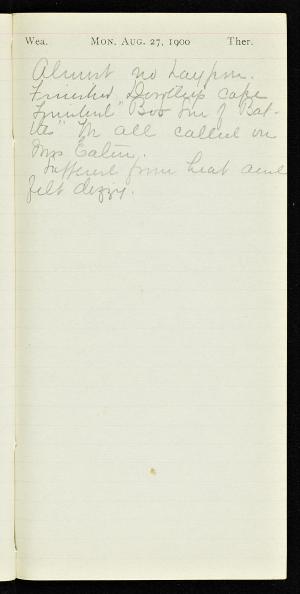 Wea. MON. AUG. 27, 1900 Ther.
Almost no
Finished Dorothy's cape
Finished "Bob Son of Bat-
tle" all called on
Mrs Eaton.
Suffered from heat and
felt dizzy.